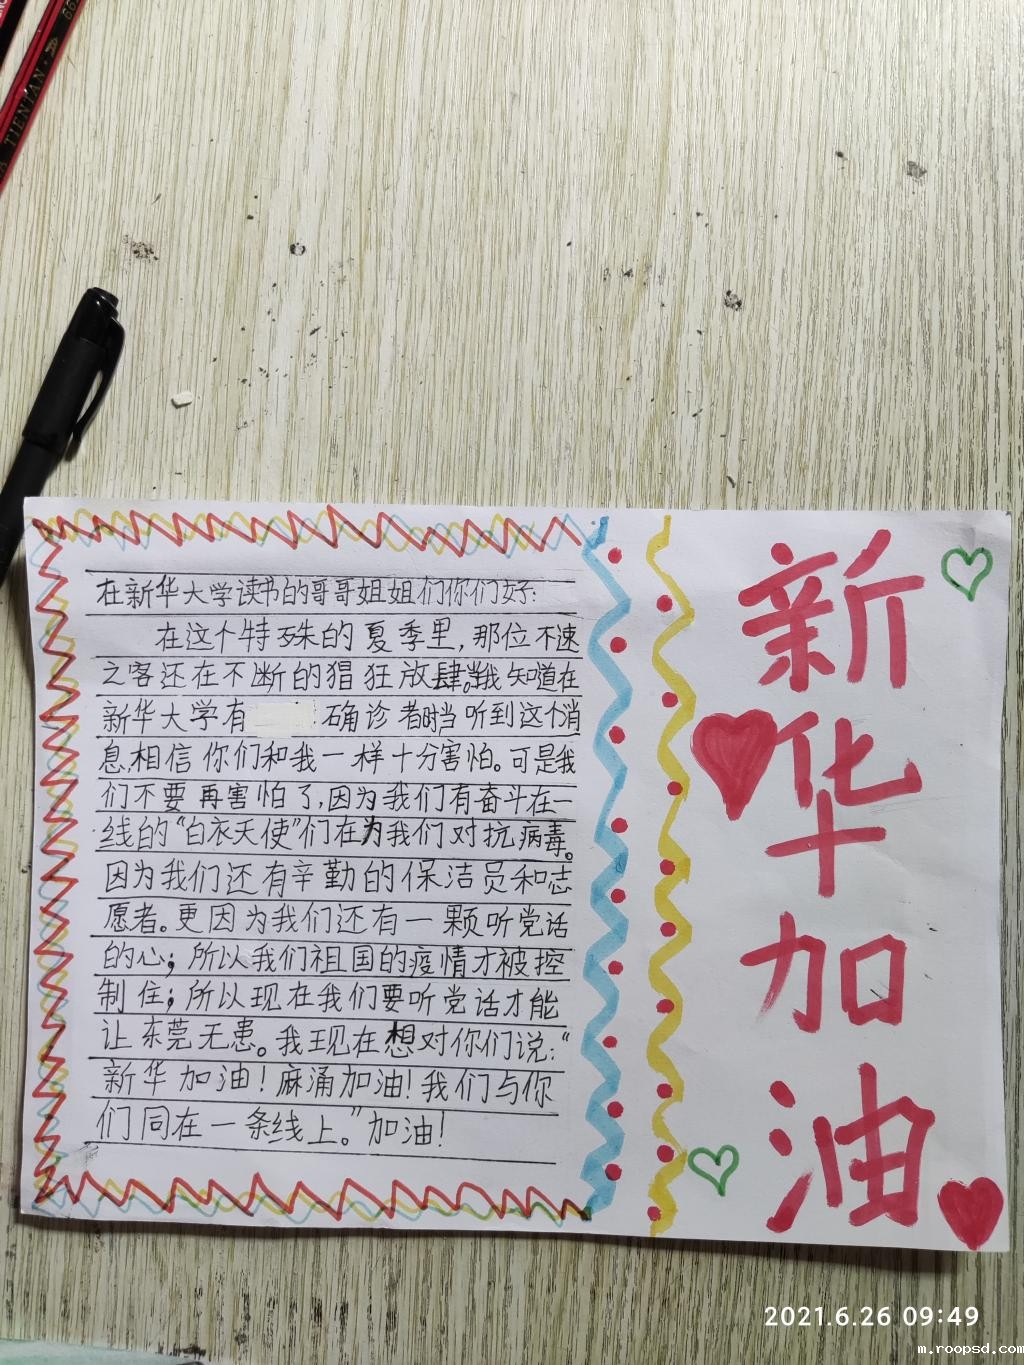 在新华大学读书的哥哥姐姐们你们好:
在这个特殊的夏季里,那位不速
之客还在不断的猖狂放肆。当我知道在
新华大学有 确诊者时当听到这个消
息,相信你们和我一样十分害怕。可是我
们不要再害怕了,因为我们有奋斗在一
线的“白衣天使”们在为我们对抗病毒。
因为我们还有辛勤的保洁员和志
愿者。更因为我们还有一颗听党话
的心;所以我们祖国的疫情才被控
制住;所以现在我们要听党话才能
让东莞无恙。我现在想对你们说:“
新华加油!麻涌加油!我们与你
们同在一条线上。”加油!
新
华
加
油
TIENTAN
2021.6.26 09:49
m.roopsd.com